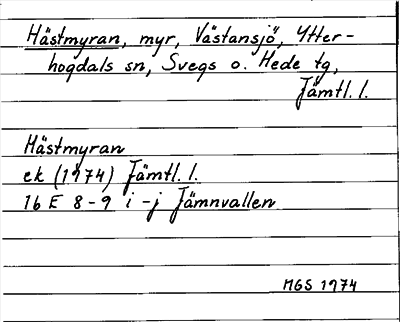 Hästmyran, myr, Västansjö, Ytter-
hogdals sn, Svegs o. Hede tg,
Jämtl. l.
Hästmyran
ek (1974) Jämtl. l.
16 E 8-9 i-j Jämnvallen
MGS 1974